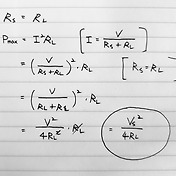 Rs = RL
Pmax = I²RL [I = V / (Rs + RL)]
= (V / (Rs + RL))² · RL [Rs = RL]
= (V / (RL + RL))² · RL
= V² / 4RL² · RL = Vs² / 4RL